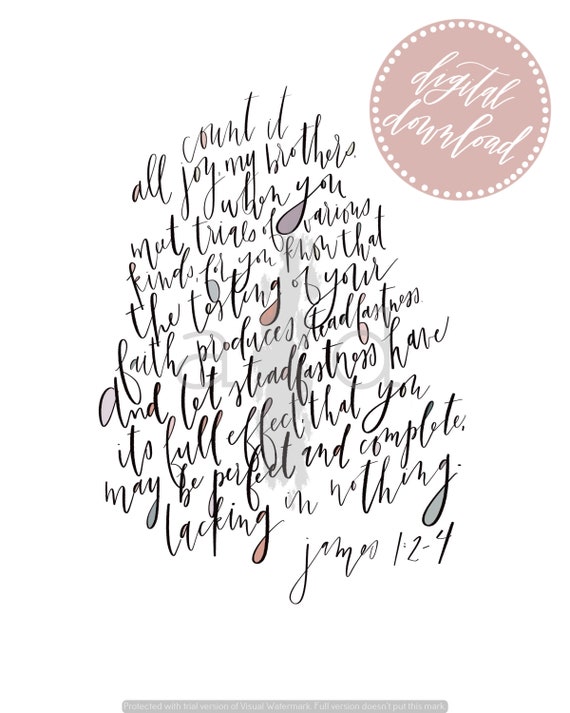 digital
download
count it
all joy, my brothers,
when you
meet trials of various
kinds, for you know that
the testing of your
faith produces steadfastness.
And let steadfastness have
its full effect, that you
may be perfect and complete,
lacking in nothing.
james 1:2-4
Protected with trial version of Visual Watermark. Full version doesn't put this mark.